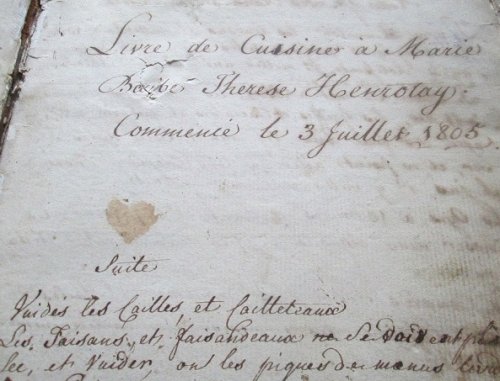 Livre de Cuisiner à Marie
Barbe Therese Henrotay.
Commencé le 3 Juillet 1805.
Suite
Vuidés les Cailles, et Cailleteaux
Les Faisans, et, faisandeaux ne se doivent
et Vuider, on les piques de menus